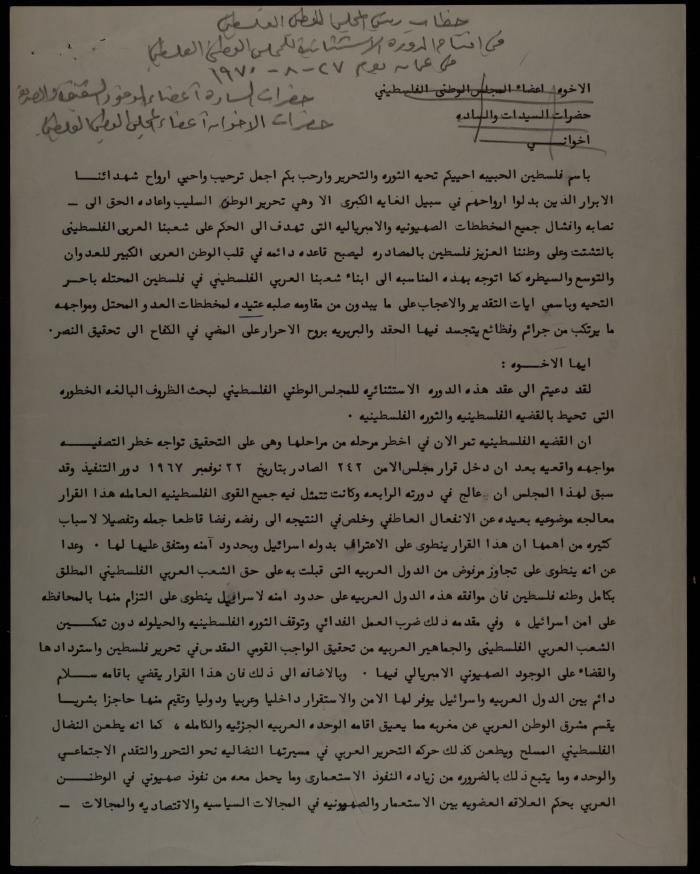 خطاب رئيس المجلس الوطني الفلسطيني
في افتتاح الدورة الاستثنائية للمجلس الوطني الفلسطيني
في عمان يوم ٢٧-٨-١٩٧٠
حضرات السادة أعضاء الوفود الشقيقة والصديقة
حضرات الاخوان أعضاء المجلس الوطني الفلسطيني
الاخوه اعضاء المجلس الوطنى الفلسطيني
حضرات السيدات والساده
اخوانــــي
باسم فلسطين الحبيبه احييكم تحيه الثوره والتحرير وارحب بكم اجمل ترحيب واحيي ارواح شهدائنــا
الابرار الذين بدلوا ارواحهم في سبيل الغايه الكبرى الا وهي تحرير الوطن السليب واعاده الحق الى —
نصابه وافشال جميع المخططات الصهيونيه والامبرياليه التى تهدف الى الحكم على شعبنا العربى الفلسطينى
بالتشتت وعلى وطننا العزيز فلسطين بالمصادره ليصبح قاعده دائمه في قلب الوطن العربى الكبير للعدوان
والتوسع والسيطره كما اتوجه بهذه المناسبه الى ابناء شعبنا العربي الفلسطيني في فلسطين المحتله باحر
التحيه وباسمى ايات التقدير والاعجاب على ما يبدون من مقاومه صلبه عتيده لمخططات العدو المحتل ومواجهه
ما يرتكب من جرائم وفظائع يتجسد فيها الحقد والبربريه بروح الاحرار على المضي في الكفاح الى تحقيق النصر٠
ايها الاخــوه :
لقد دعيتم الى عقد هذه الدوره الاستثنائيه للمجلس الوطني الفلسطيني لبحث الظروف البالغه الخطوره
التى تحيط بالقضيه الفلسطينيه والثوره الفلسطينيه ٠
ان القضيه الفلسطينيه تمر الان في اخطر مرحله من مراحلها وهى على التحقيق تواجه خطر التصفيــه
مواجهه واقعيه بعد ان دخل قرار مجلس الامن ٢٤٢ الصادر بتاريخ ٢٢ نوفمبر ١٩٦٧ دور التنفيذ وقد
سبق لهذا المجلس ان عالج في دورته الرابعه وكانت تتمثل فيه جميع القوى الفلسطينيه العامله هذا القرار
معالجه موضوعيه بعيده عن الانفعال العاطفي وخلص في النتيجه الى رفضه رفضا قاطعا جمله وتفصيلا لاسباب
كثيره من اهمها ان هذا القرار ينطوى على الاعتراف بدوله اسرائيل وبحدود آمنه ومتفق عليها لها ٠ وعدا
عن انه ينطوى على تجاوز مرفوض من الدول العربيه التى قبلت به على حق الشعب العربي الفلسطيني المطلق
بكامل وطنه فلسطين فان موافقه هذه الدول العربيه على حدود امنه لاسرائيل ينطوى على التزام منها بالمحافظه
على امن اسرائيل ، وفي مقدمه ذلك ضرب العمل الفدائي وتوقف الثوره الفلسطينيه والحيلوله دون تمكــين
الشعب العربي الفلسطينى والجماهير العربيه من تحقيق الواجب القومي المقدس في تحرير فلسطين واستردادها
والقضاء على الوجود الصهيوني الامبريالي فيها ٠ وبالاضافه الى ذلك فان هذا القرار يقضي باقامه ســلام
دائم بين الدول العربيه واسرائيل يوفر لها الامن والاستقرار داخليا وعربيا ودوليا وتقيم منها حاجزا بشريــا
يقسم مشرق الوطن العربي عن مغربه مما يعيق اقامه الوحده العربيه الجزئيه والكامله ، كما انه يطعن النضال
الفلسطيني المسلح ويطعن كذلك حركه التحرير العربي في مسيرتها النضاليه نحو التحرر والتقدم الاجتماعــي
والوحده وما يتبع ذلك بالضروره من زياده النفوذ الاستعمارى وما يحمل معه من نفوذ صهيوني في الوطــن
العربي بحكم العلاقه العضويه بين الاستعمار والصهيونيه في المجالات السياسيه والاقتصاديه والمجالات —